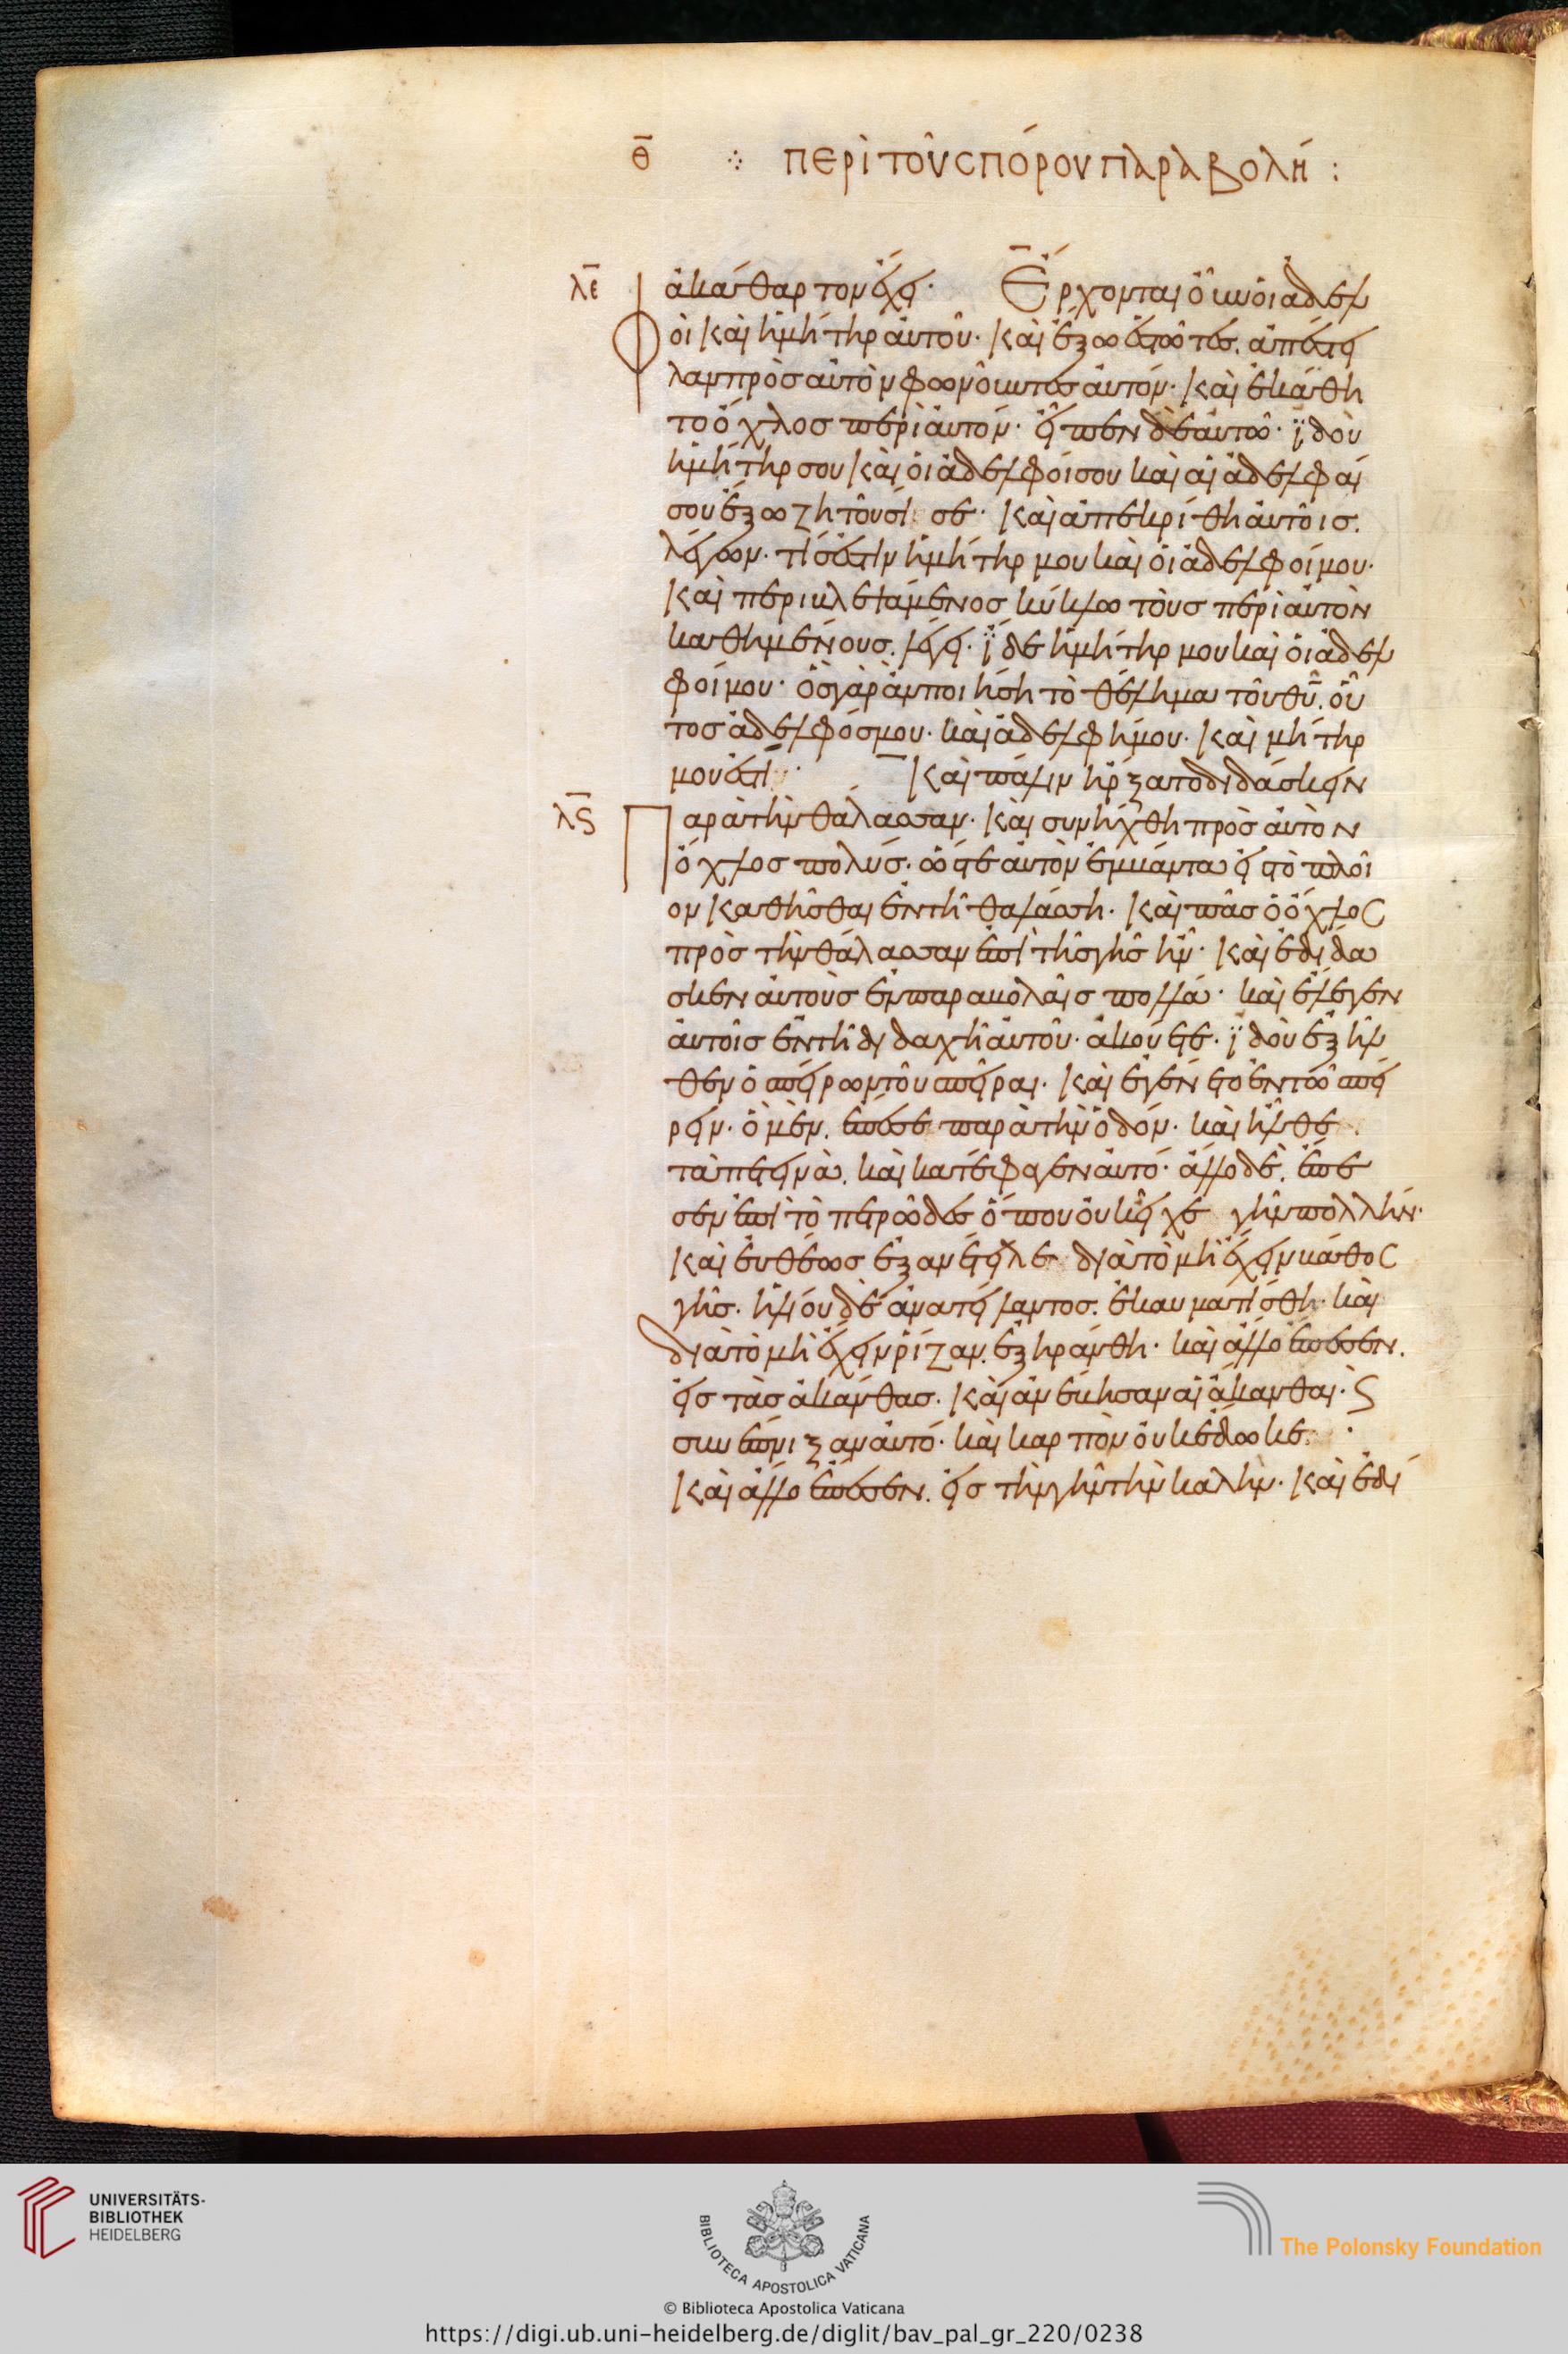 θ ⁘ περὶ τοῦ σπόρου παραβολή :
λε ἀκάθαρτον ἔχει· Ἔρχονται οὖν οἱ ἀδελ
φοὶ καὶ ἡ μήτηρ αὐτοῦ· καὶ ἔξω ἑστῶτες. ἀπέστει
λαν πρὸς αὐτὸν φωνοῦντες αὐτόν· καὶ ἐκάθη
το ὄχλος περὶ αὐτόν· εἶπεν δὲ αὐτῶ· ἰδοὺ
ἡ μήτηρ σου καὶ οἱ ἀδελφοί σου καὶ αἱ ἀδελφαί
σου ἔξω ζητοῦσί σε· καὶ ἀπεκρίθη αὐτοῖς.
λέγων· τίς ἐστιν ἡ μήτηρ μου καὶ οἱ ἀδελφοί μου·
καὶ περιβλεψάμενος κύκλω τοὺς περὶ αὐτὸν
καθημένους. λέγει· ἴδε ἡ μήτηρ μου καὶ οἱ ἀδελ
φοί μου· ὃς γὰρ ἂν ποιήση τὸ θέλημα τοῦ θυ. οὗ
τος ἀδελφός μου· καὶ ἀδελφή μου· καὶ μήτηρ
μου ἐστί· Καὶ πάλιν ἤρξατο διδάσκειν
λς παρὰ τὴν θάλασσαν· καὶ συνήχθη πρὸς αὐτὸν
ὄχλος πολύς· ὥστε αὐτὸν ἐμβάντα εἰς τὸ πλοῖ
ον καθῆσθαι ἐν τῆ θαλάσση· καὶ πᾶς ὁ ὄχλος
πρὸς τὴν θάλασσαν ἐπὶ τῆς γῆς ἦν· καὶ ἐδίδα
σκεν αὐτοὺς ἐν παραβολαῖς πολλά· καὶ ἔλεγεν
αὐτοῖς ἐν τῆ διδαχῆ αὐτοῦ· ἀκούετε· ἰδοὺ ἐξῆλ
θεν ὁ σπείρων τοῦ σπεῖραι· καὶ ἐγένετο ἐν τῶ σπεί
ρειν· ὃ μὲν. ἔπεσε παρὰ τὴν ὁδόν· καὶ ἦλθε
τὰ πετεινὰ. καὶ κατέφαγεν αὐτό· ἄλλο δὲ. ἔπε
σεν ἐπὶ τὸ πετρῶδες ὅπου οὐκ εἶχε γῆν πολλήν·
καὶ εὐθέως ἐξανέτειλε διὰ τὸ μὴ ἔχειν βάθος
γῆς. ἡλίου δὲ ἀνατείλαντος. ἐκαυματίσθη· καὶ
διὰ τὸ μὴ ἔχειν ῥίζαν. ἐξηράνθη· καὶ ἄλλο ἔπεσεν.
εἰς τὰς ἀκάνθας. καὶ ἀνέβησαν αἱ ἄκανθαι· ϛ
συνέπνιξαν αὐτό· καὶ καρπὸν οὐκ ἔδωκε·
καὶ ἄλλο ἔπεσεν. εἰς τὴν γῆν τὴν καλὴν· καὶ ἐδί
UNIVERSITÄTS-
BIBLIOTHEK
HEIDELBERG
BIBLIOTECA APOSTOLICA VATICANA
The Polonsky Foundation
© Biblioteca Apostolica Vaticana
https://digi.ub.uni-heidelberg.de/diglit/bav_pal_gr_220/0238